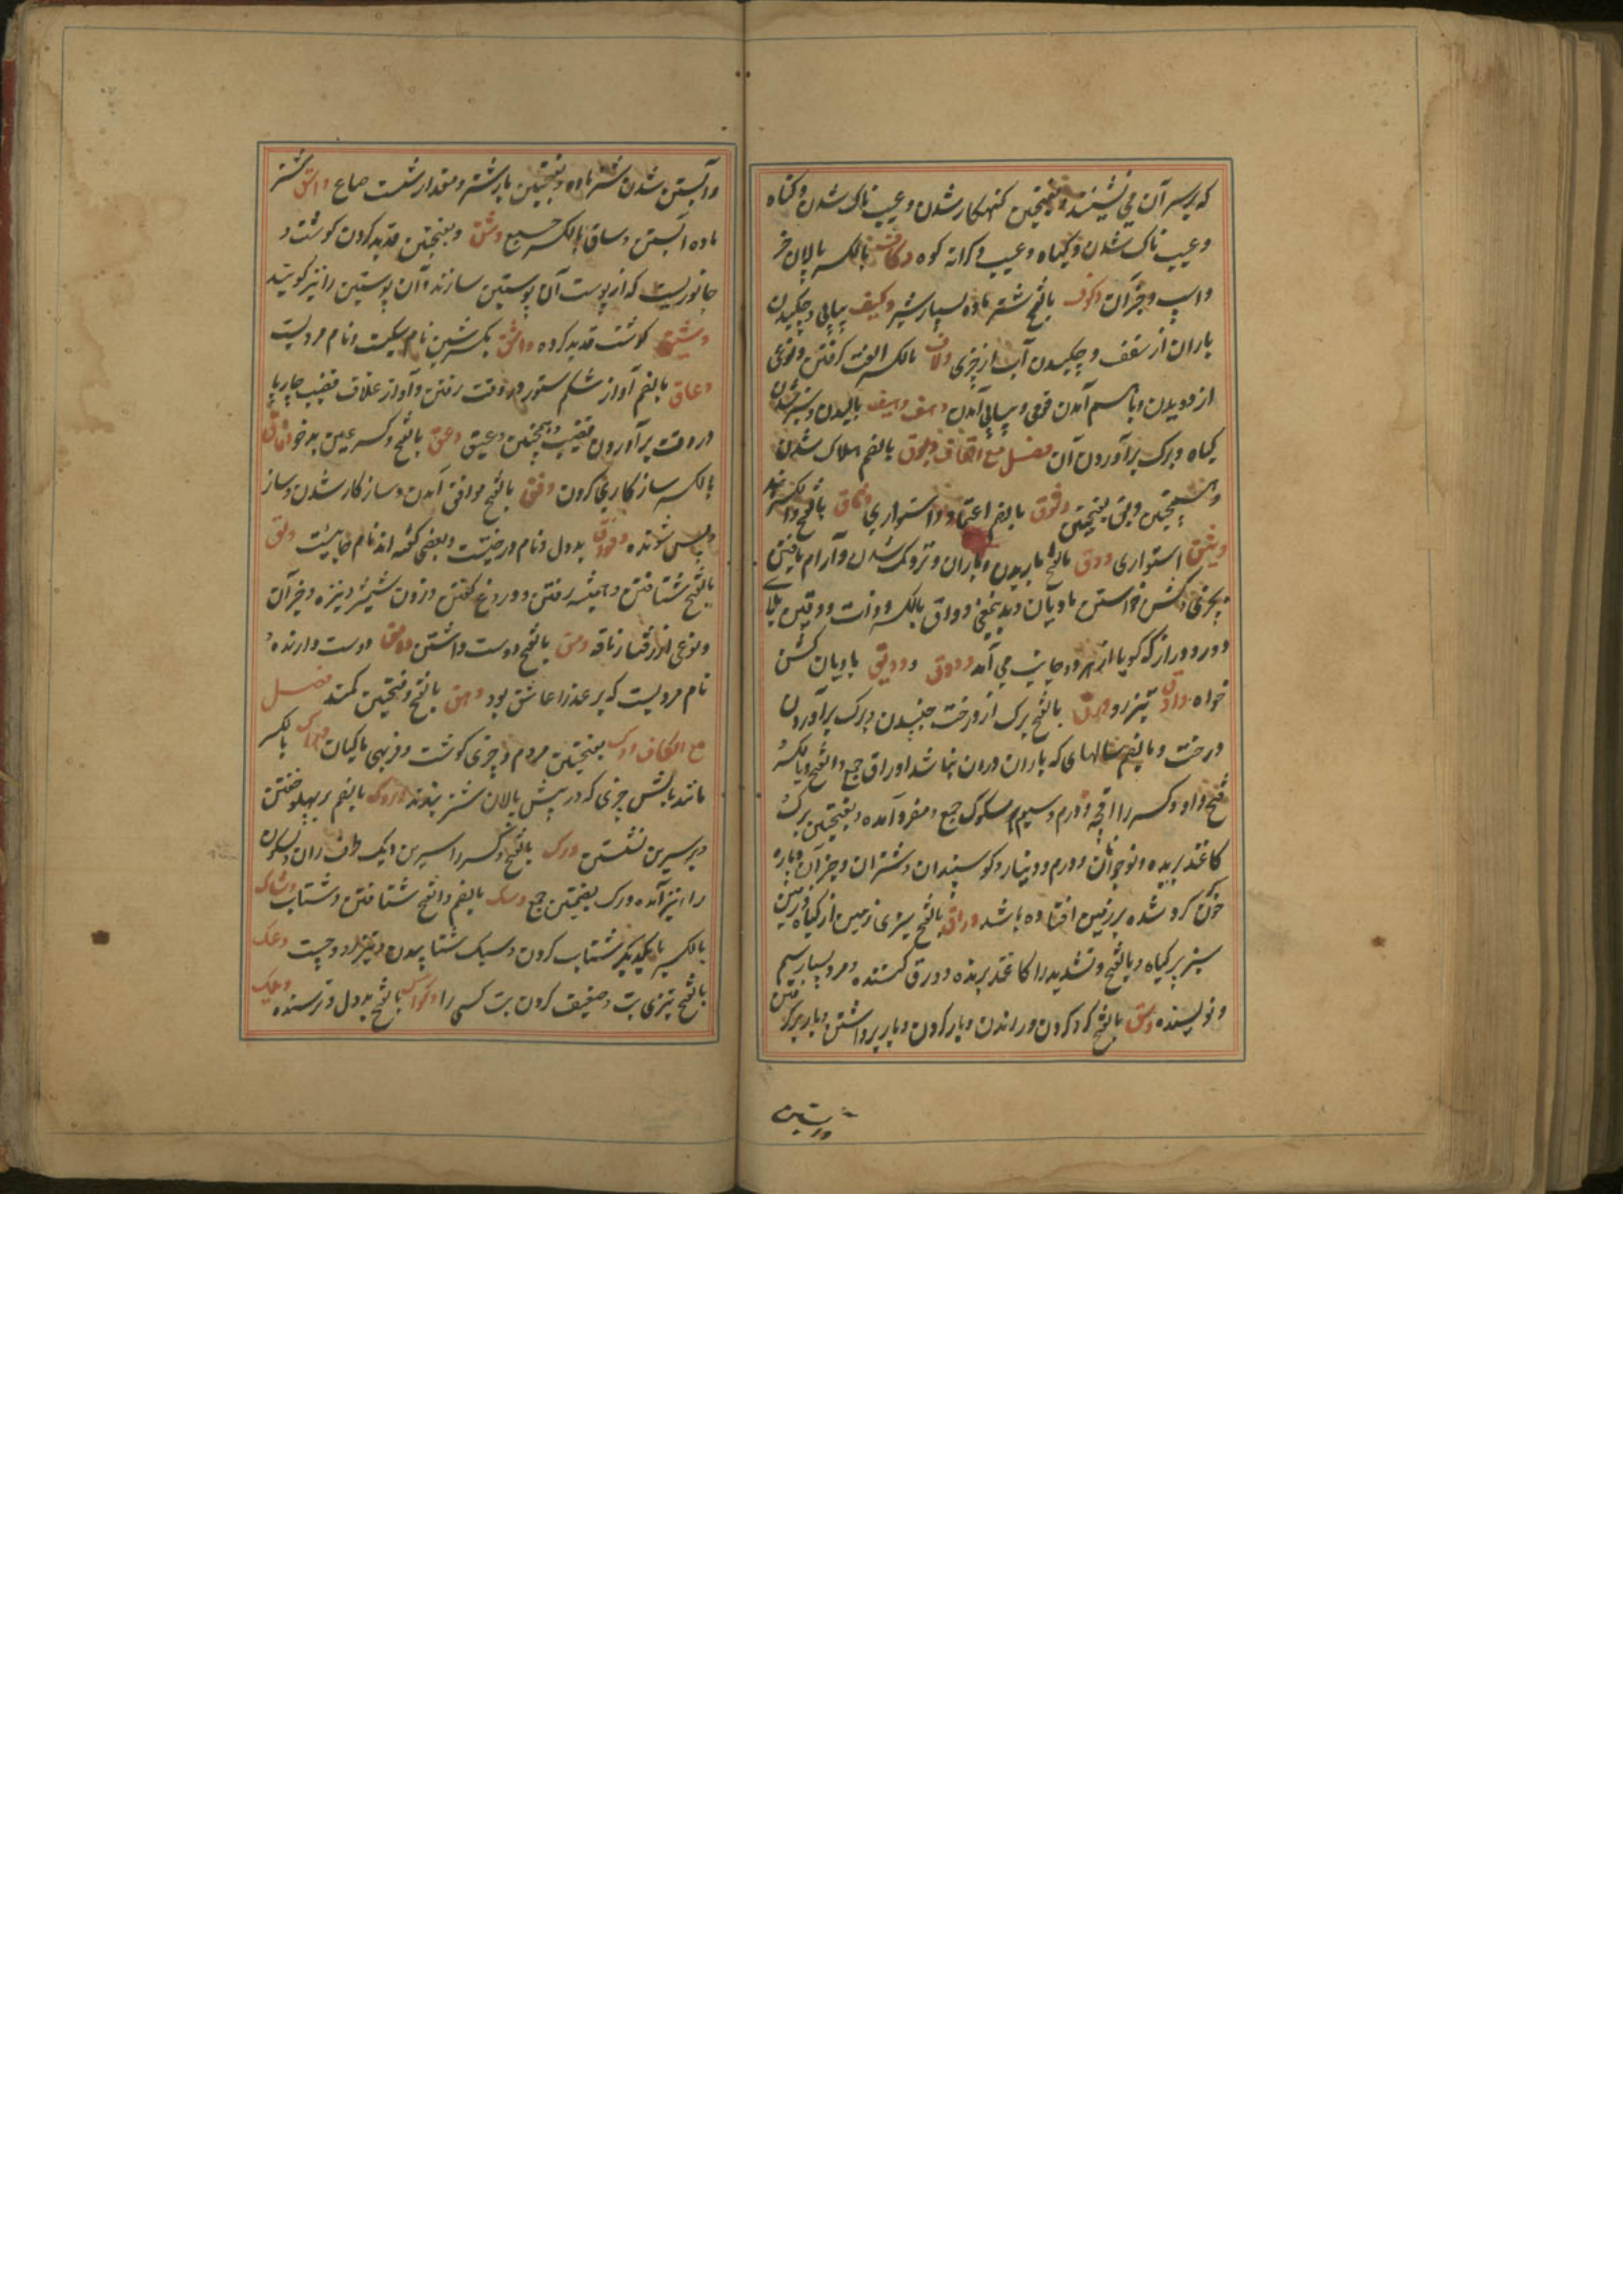 که بر سر آن می نشینند و بفتحتین کنهکار شدن و عیب ناک شدن و کناه
و عیب ناک شدن و کناه و عیب و کرانه کوه وکاف بالکسر پالان خر
و اسپ و جز آن وکوف بالفتح شتر ماده بسیار شیر وکیف پیاپی چکیدن
باران از سقف و چکیدن آب از چیزی ولاف بالکسر الفت کرفتن و نوعی
از دویدن و با هم آمدن قومی و پیاپی آمدن وهف وهیف بالیدن و سبز شدن
کیاه و برک برآوردن آن فصل مع القاف وبوق بالضم هلاک شدن
وبق بفتحتین وثوق بالضم اعتماد و استواری وثاق بالفتح والکسر بند
وثیق استواری ودق بالفتح باریدن باران و نزدیک شدن و آرام یافتن
بچیزی و کشن خواستن مادیان وداق بالکسر
و دور دراز که کویا از هر دو جانب می آمد ودوق وودیق مادیان کشن
خواه تیز رو ورق بالفتح برک از درخت چیدن و برک برآوردن
درخت و بالضم سالهای که باران دران نباشد اوراق جمع و بالفتح و بالکسر
فتح واو و کسر را درم و سیم مسکوک جمع و مفرد آمده و بفتحتین برک
کاغذ بریده و نوجوانان و درم و دینار و کوسپندان و شتران و جز آن و پاره
خون کرد شده بر زمین افتاده باشد وراق بالفتح سبزی زمین از کیاه و زمین
سبز پر کیاه و بالفتح و تشدید را کاغذ برنده و ورق کننده و مرد بسیار سیم
و نویسنده وسق بالفتح کرد کردن و راندن و بار کردن و بار برداشتن و بار برکرفتن
و آبستن شدن شتر ماده و بفتحتین بار شتر و مقدار شصت صاع واسق شتر
ماده آبستن وساق بالکسر جمع وشق و بفتحتین قدید کردن کوشت و
جانوریست که از پوست آن پوستین سازند و آن پوستین را نیز کویند
وشیق کوشت قدید کرده واشق بکسر شین نام سکیست و نام مردیست
وعاق بالضم آواز شکم ستور در وقت رفتن و آواز غلاف قضیب چارپا
در وقت برآوردن قضیب و همچنین وعیق وعق بالفتح و کسر عین بدخو وفاق
بالکسر سازکاری کردن وفق بالفتح موافق آمدن و سازکار شدن و ساز
بددل و نام درختیست و بعضی کفته اند نام جاییست ولق
بالفتح شتافتن و همیشه رفتن و دروغ کفتن و زدن شمشیر و نیزه و جز آن
و نوعی از رفتار ناقه ومق بالفتح دوست داشتن وامق دوست دارنده و
نام مردیست که بر عذرا عاشق بود وهق بالفتح و بفتحتین کمند فصل
مع الکاف ودک بفتحتین مردم و چیزی کوشت و فربهی ماکیان وراک بالکسر
مانند بالش چیزی که در پیش پالان شتر بندند وروک بالضم بر پهلو خفتن
و بر سرین نشستن ورک بالفتح و کسر را سرین و یک طرف ران و بسکون
را نیز آمده ورک بضمتین جمع وسک بالضم و الفتح شتافتن و شتاب وشاک
بالکسر با یکدیکر شتاب کردن و سبک شتابیدن و تیز رو و چست وعک
بالفتح تیزی تب و ضعیف کردن تب کسی را وکواک بالفتح بددل و ترسنده وعیک